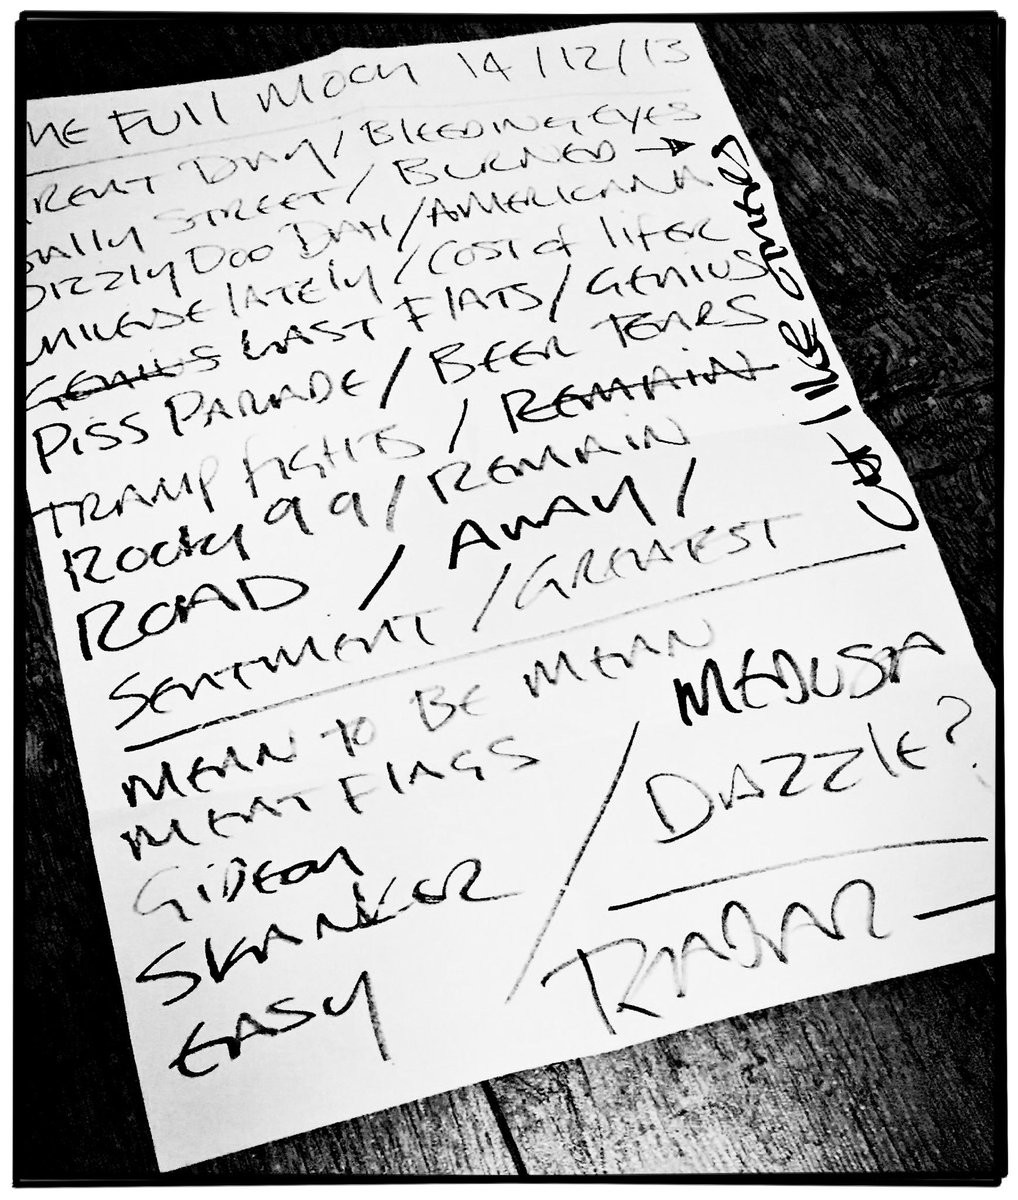 HE FULL MOON 14/12/13
RENT DAY / BLEEDING EYES
ALLY STREET / BURNED →
DIZZLY DOO DAH / AMERICANA
LATELY / COST of LIFER
GENIUS LAST FLATS / GENIUS
PISS PARADE / BEER TEARS
TRAMP FIGHTS / REMAIN
ROCKY 99 / REMAIN
ROAD / AWAY /
SENTMENT / GREATEST
CUT like
MEAN to BE MEAN
MEAT FLAGS
GIDEON
SKANKER
EASY
/ MEDUSA
DAZZLE?
RADAR —